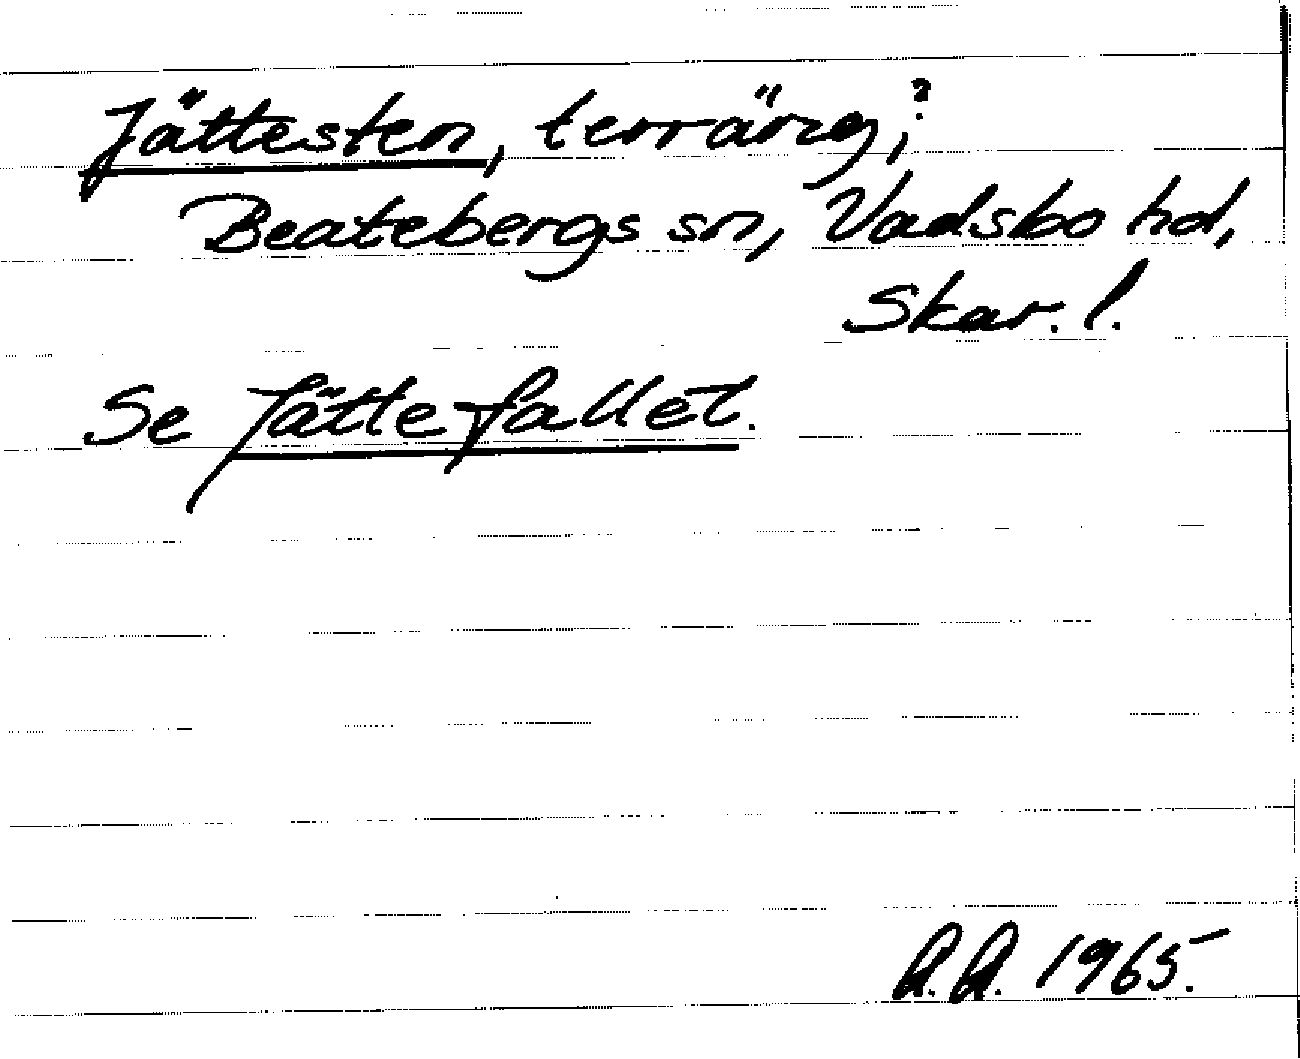 Jättesten, terräng;?
Beatebergs sn, Vadsbo hd,
Skar. l.
Se Jättefallet.
A.A. 1965.